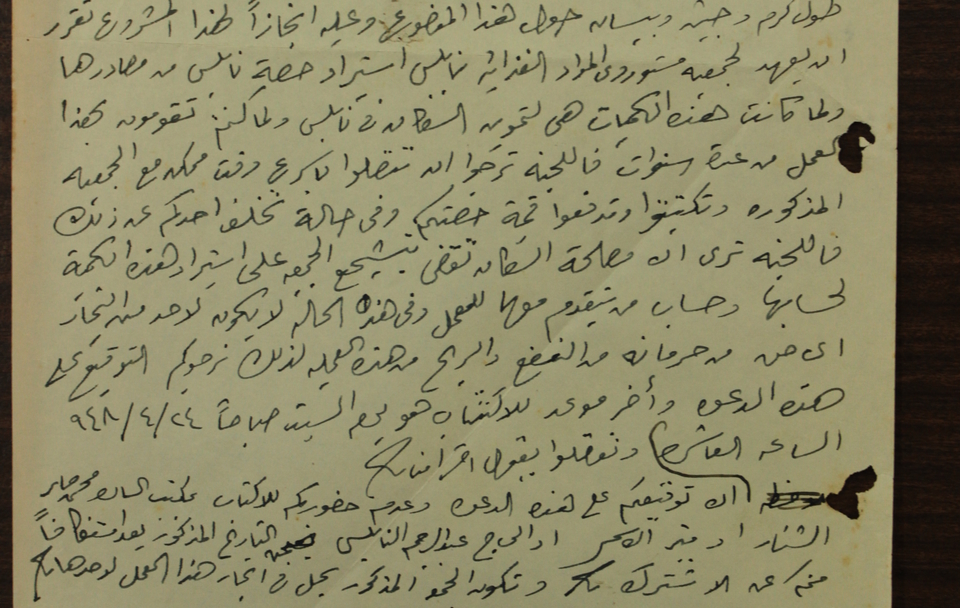 طولكرم وجنين وبيسان حول هذا الموضوع وعليه انجازاً لهذا المشروع تقرر
ان يعهد لجمعية مستوردي المواد الغذائية نابلس استيراد حصة نابلس من مصادرها
ولما كانت هذه الكميات هي لتموين السكان في نابلس ولما كنتم تقومون بهذا
العمل من عدة سنوات فاللجنة ترجوا ان تتفضلوا باسرع وقت ممكن مع الجمعية
المذكوره وتكتتبوا وتدفعوا قيمة حصتكم وفي حالة تخلف احدكم عن ذلك
فاللجنه ترى ان مصلحة السكان تقضي بتشجيع الجمعية على استيراد هذه الكمية
لحسابها وحساب من يتقدم معها للعمل وفي هذه الحالة لا يكون لاحد من التجار
اي حق من حرمانه من النفع والربح من هذه العملية لذلك نرجوكم التوقيع على
هذه الدعوه وأخر موعد للاكتتاب هو يوم السبت صباحاً ٢٤/٤/٩٤٨
الساعه العاشرة وتفضلوا بقبول احترامنا
ان توقيعكم على هذه الدعوه وعدم حضوركم للاكتتاب بمكتب السادة محمد صابر
الشنار او منير الاحمر او الحاج عبدالرحيم النابلسي التاريخ المذكور يعد استنكافاً
منكم عن الاشتراك وتكون الجمعية المذكورة بحل في انجاز هذا العمل لوحدها